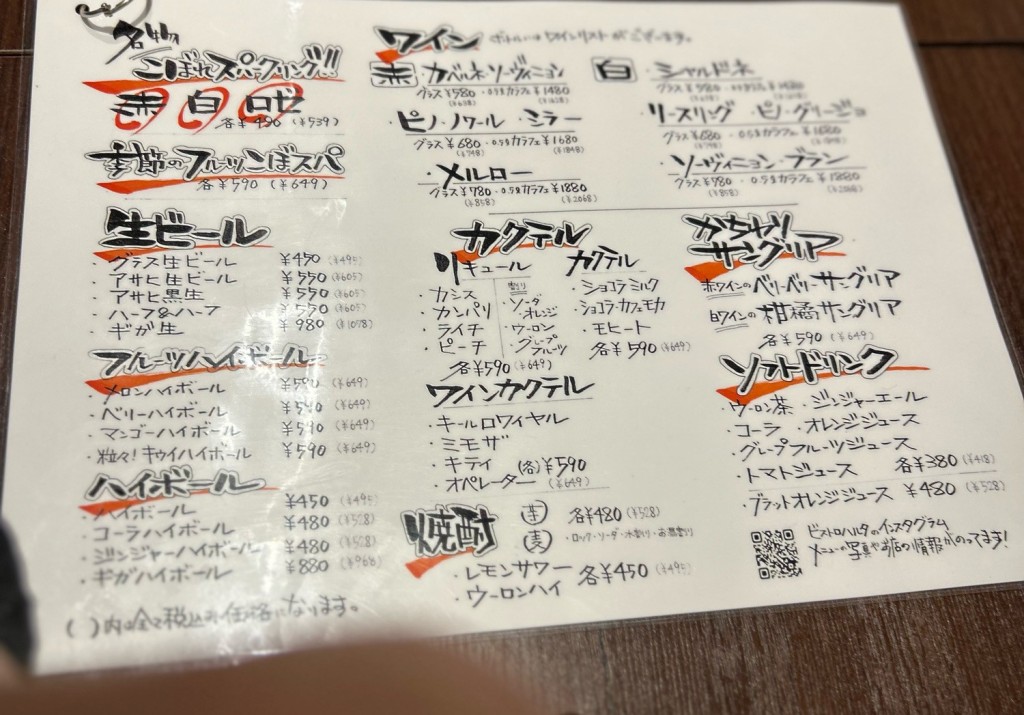 名物
こぼれスパークリング!!
赤 白 ロゼ
各¥490 (¥539)
季節のフルーツこぼスパ
各¥590 (¥649)
生ビール
・グラス生ビール ¥450 (¥495)
・アサヒ生ビール ¥550 (¥605)
・アサヒ黒生 ¥550 (¥605)
・ハーフ&ハーフ ¥550 (¥605)
・ギガ生 ¥980 (¥1078)
フルーツハイボール
・メロンハイボール ¥590 (¥649)
・ベリーハイボール ¥590 (¥649)
・マンゴーハイボール ¥590 (¥649)
・粒々!キウイハイボール ¥590 (¥649)
ハイボール
・ハイボール ¥450 (¥495)
・コーラハイボール ¥480 (¥528)
・ジンジャーハイボール ¥480 (¥528)
・ギガハイボール ¥880 (¥968)
( )内は全て税込み価格になります。
ワイン ボトルはワインリストがございます。
赤 ・カベルネ・ソーヴィニョン
グラス¥580 ・0.5ℓカラフェ¥1480
・ピノ・ノワール ・シラー
グラス¥680 ・0.5ℓカラフェ¥1680
(¥748) (¥1848)
・メルロー
グラス¥780 ・0.5ℓカラフェ¥1880
(¥858) (¥2068)
白 ・シャルドネ
グラス¥580 ・0.5ℓカラフェ¥1480
・リースリング ・ピノ・グリージョ
グラス¥680 ・0.5ℓカラフェ¥1680
(¥748) (¥1848)
・ソーヴィニョン・ブラン
グラス¥780 ・0.5ℓカラフェ¥1880
(¥858) (¥2068)
カクテル
リキュール
・カシス
・カンパリ
・ライチ
・ピーチ
割り
・ソーダ
・オレンジ
・ウーロン
・グレープフルーツ
各¥590 (¥649)
カクテル
・ショコラミルク
・ショコラ・カフェモカ
・モヒート
各¥590 (¥649)
ワインカクテル
・キールロワイヤル
・ミモザ
・キティ (各)¥590
・オペレーター (¥649)
焼酎
芋 各¥480 (¥528)
麦 ・ロック・ソーダ・水割り・お湯割り
・レモンサワー 各¥450 (¥495)
・ウーロンハイ
がちゃり
サングリア
赤ワインのベリーベリーサングリア
白ワインの柑橘サングリア
各¥590 (¥649)
ソフトドリンク
・ウーロン茶 ・ジンジャーエール
・コーラ ・オレンジジュース
・グレープフルーツジュース
・トマトジュース 各¥380 (¥418)
・ブラッドオレンジジュース ¥480 (¥528)
ビストロハルタのインスタグラム
メニューの写真やお店の情報がのってます!